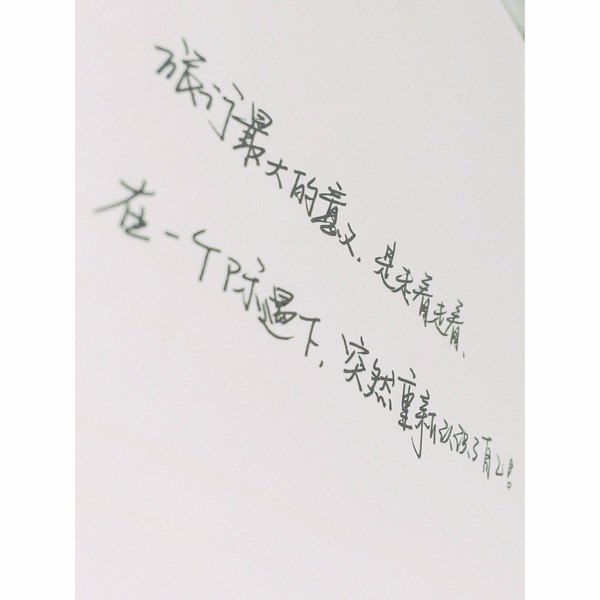 旅行最大的意义、是走着走着、
在一个际遇下、突然重新认识了自己!